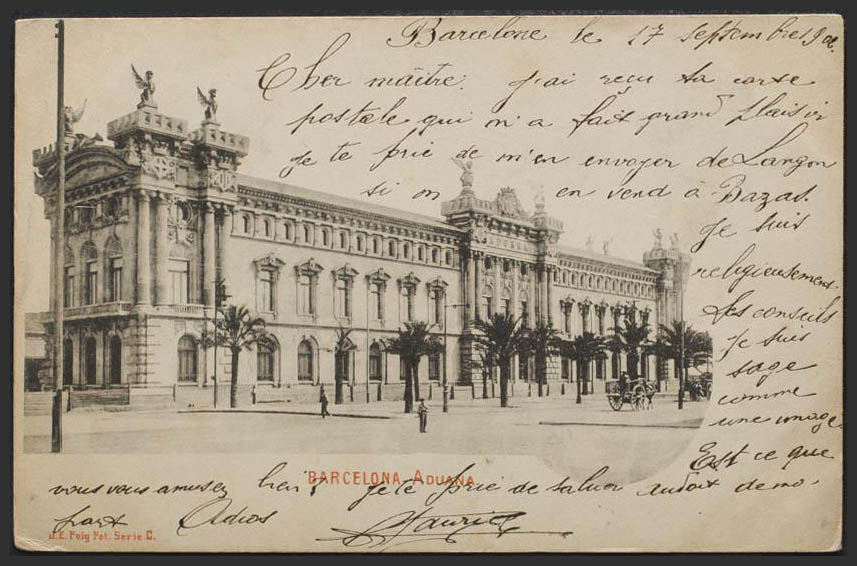 Barcelone le 17 septembre 1902.
Cher maître. J'ai reçu ta carte
postale qui m'a fait grand plaisir
je te prie de m'en envoyer de Langon
si on en vend à Bazas.
Je suis
religieusement
les conseils
Je suis
sage
comme
une image
Est ce que
vous vous amusez bien? Je te prie de saluer de ma
part Adios Maurice
BARCELONA-ADUANA
J.E. Puig Fot. Serie C.